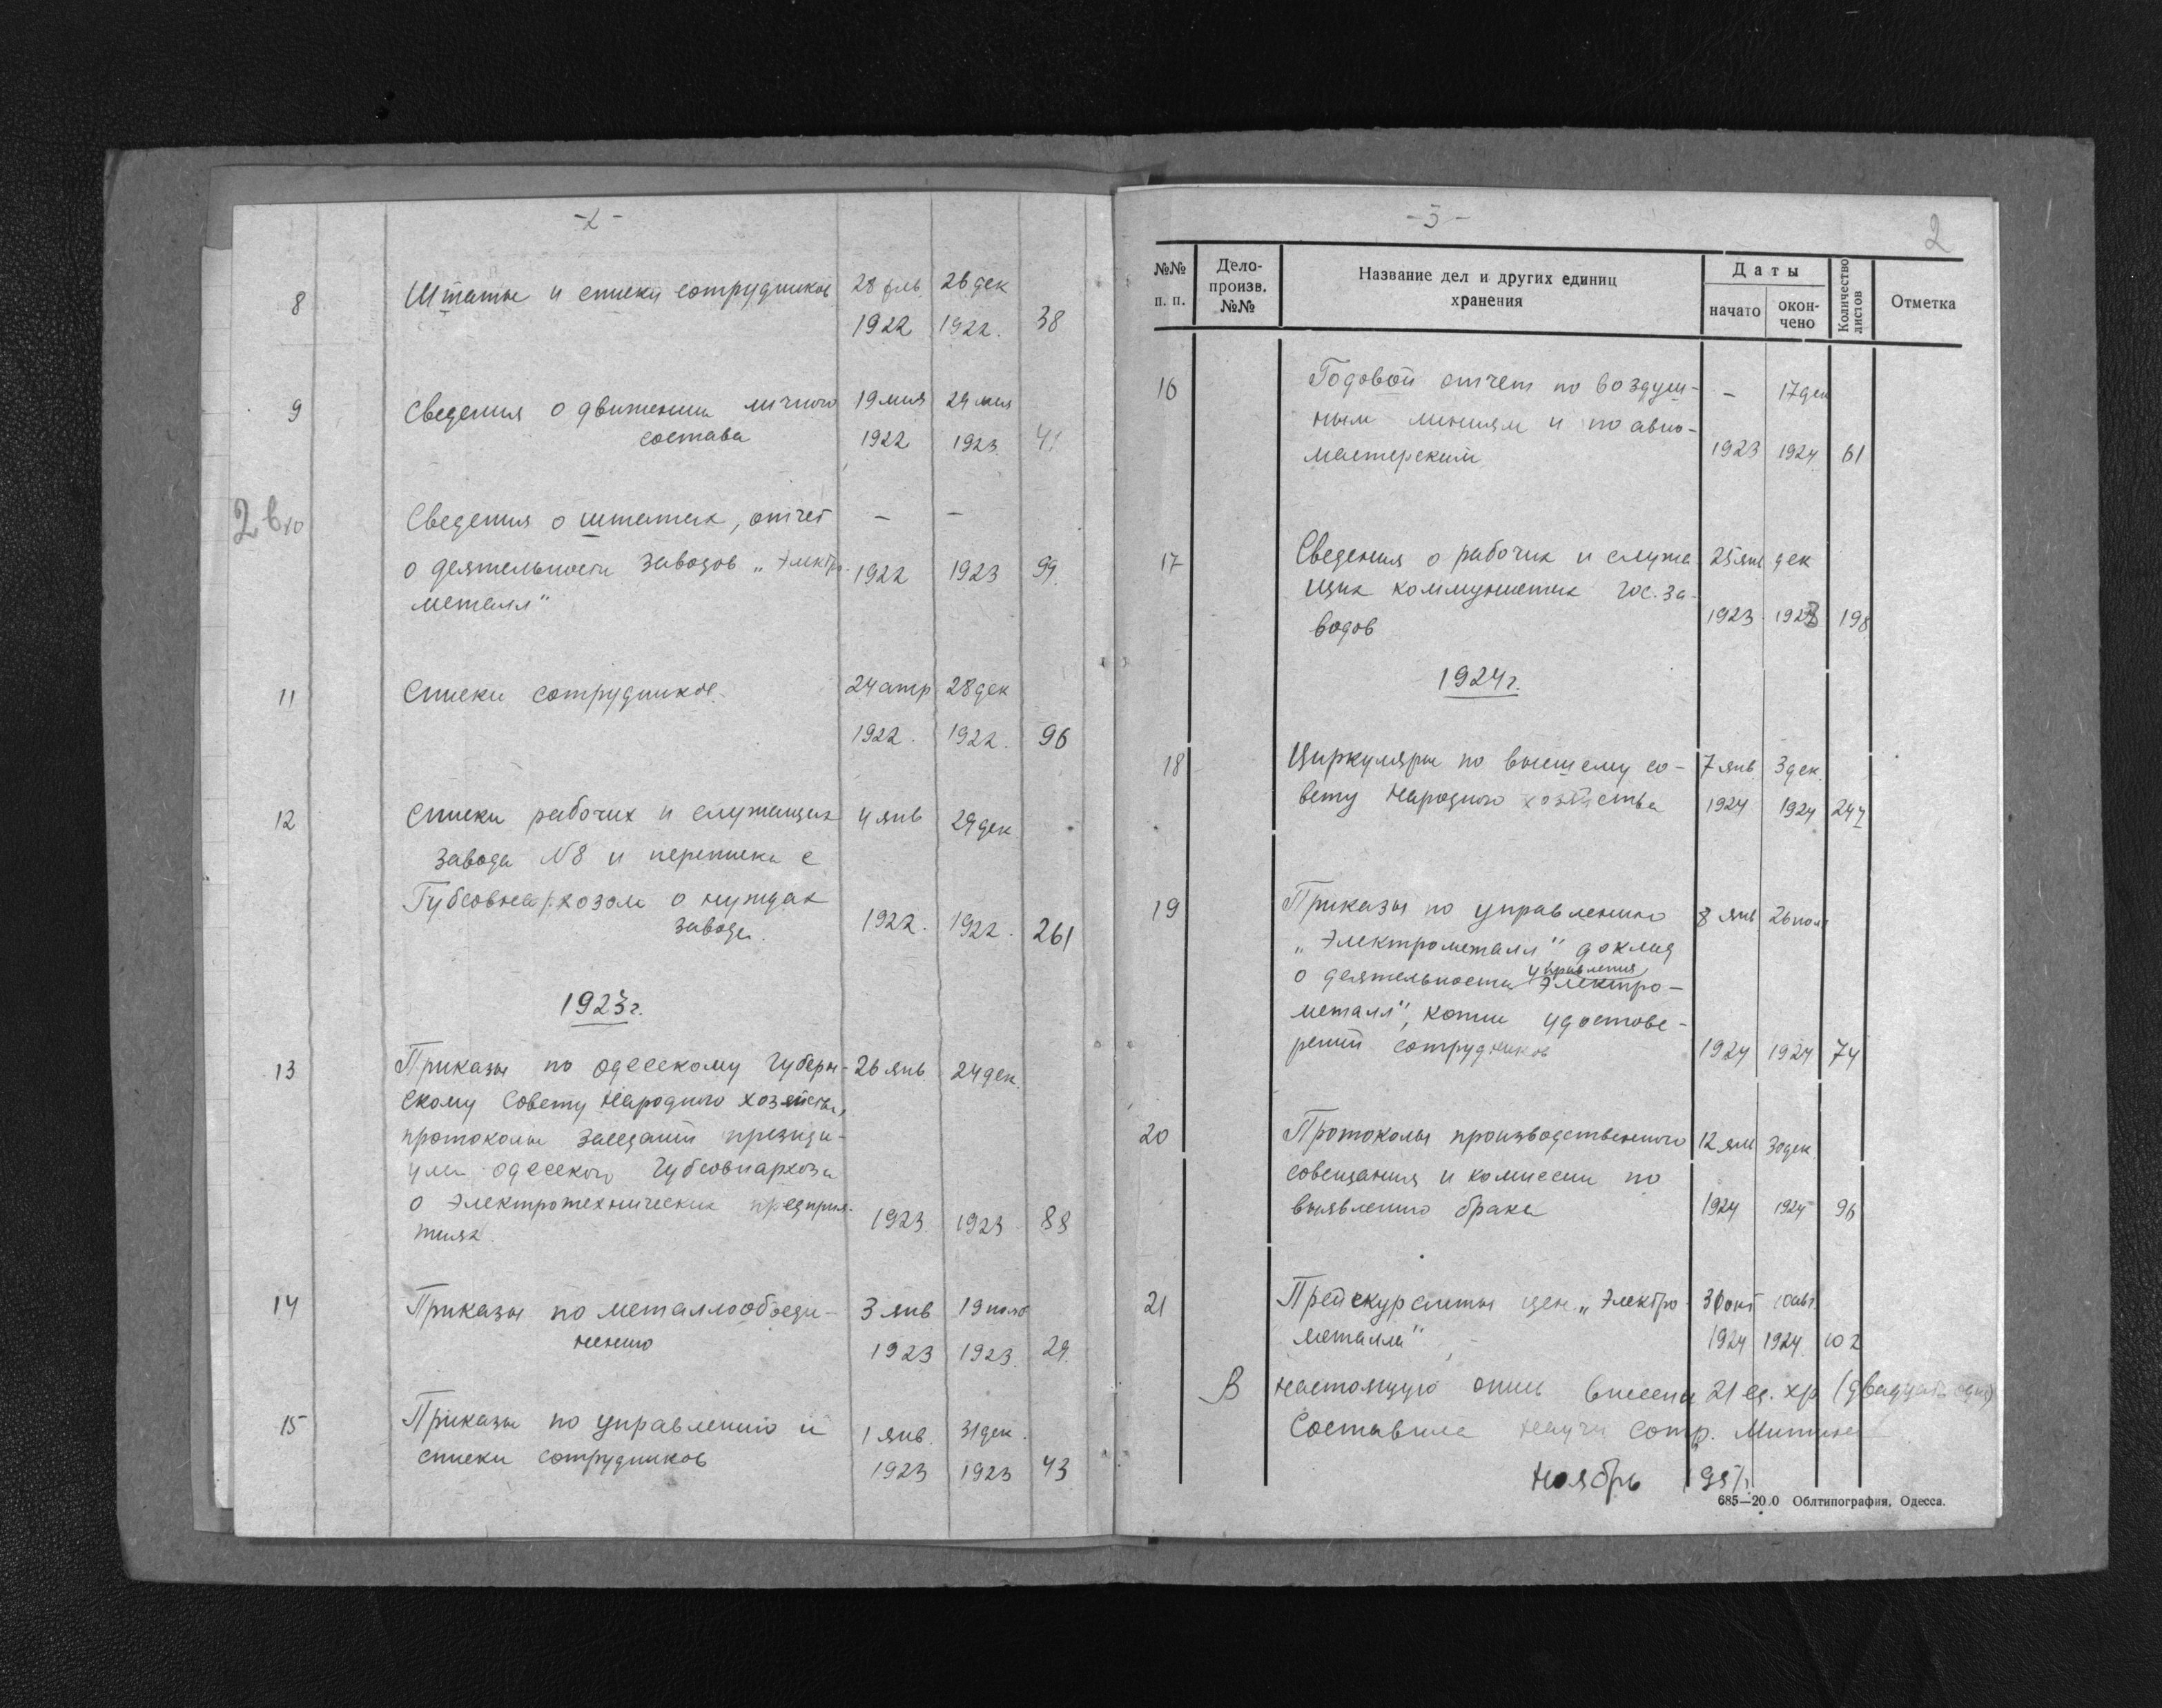 -2-
8 Штаты и списки сотрудников 28 фев. 26 дек
1922 1922. 38
9 Сведения о движении личного 19 мая 24 мая
состава 1922 1923. 41
2 в 10 Сведения о штатах, отчет — —
о деятельности заводов „Электро- 1922 1923 99.
металл"
11 Списки сотрудников. 24 апр 28 дек
1922. 1922. 96
12 Списки рабочих и служащих 4 янв 29 дек
завода №8 и переписка с
Губсовнархозом о нуждах
завода. 1922. 1922. 261
1923г.
13 Приказы по Одесскому Губерн- 26 янв. 24 дек.
скому Совету Народного хозяйства,
протоколы заседаний президи-
ума Одесского Губсовнархоза
о электротехнических предприя-
тиях. 1923. 1923 88
14 Приказы по металлообъеди- 3 янв 19 июля
нению 1923 1923. 29.
15 Приказы по управлению и 1 янв. 31 дек.
списки сотрудников 1923 1923 43
-3-
2
№№ п. п. Дело- произв. №№ Название дел и других единиц хранения Даты начато окон- чено Количество листов Отметка
16 Годовой отчет по воздуш- — 17 дек
ным линиям и по авто-
мастерским 1923 1924 61
17 Сведения о рабочих и служа 25 янв дек
щих коммунистах гос. за-
водов 1923 1923 198
1924г.
18 Циркуляры по высшему со- 7 янв 3 дек.
вету Народного хозяйства 1924 1924 247
19 Приказы по управлению 8 янв 26 ноя
„Электрометалл" доклад
управления
о деятельности „Электро-
металл", копии удостове-
рений сотрудников 1924 1924 74
20 Протоколы производственного 12 янв 30 дек.
совещания и комиссии по
выявлению брака 1924 1924 96
21 Прейскуранты цен „Электро 31 окт 10 окт.
металла" 1924 1924 102
В настоящую опись внесены 21 ед. хр (двадцать одна)
Составила научн сотр. Митина
Ноябрь 1957г.
685—20.0 Облтипография, Одесса.